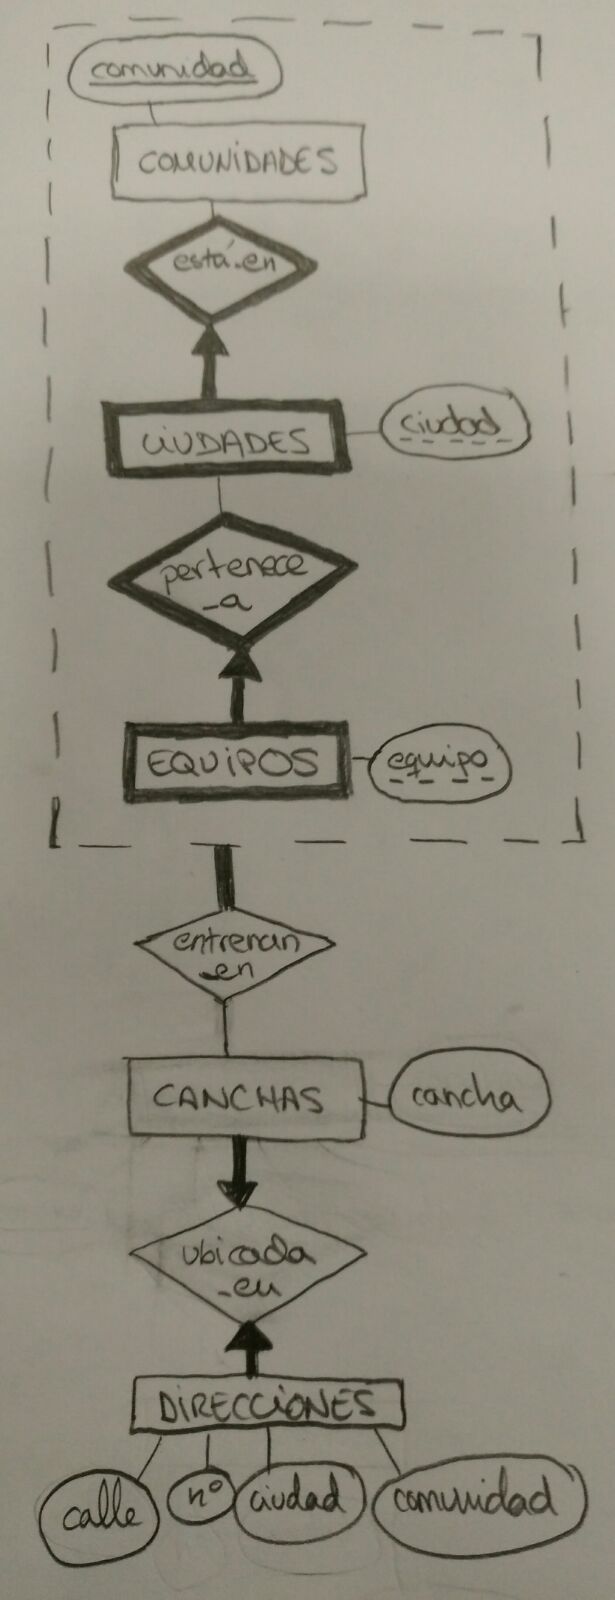 comunidad
COMUNIDADES
está-en
CIUDADES
ciudad
pertenece
_a
EQUIPOS
equipo
entrenan
_en
CANCHAS
cancha
ubicada
_en
DIRECCIONES
calle
nº
ciudad
comunidad